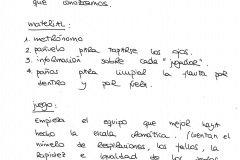 que conozcamos.
material:
1. metrónomo
2. pañuelo para taparse los ojos.
3. información sobre cada "jugador".
4. paños para limpiar la flauta por
dentro y por fuera.
juego:
Empieza el equipo que mejor haya
hecho la escala cromática. (cuentan el
número de respiraciones, los fallos, la
rapidez e igualdad de los